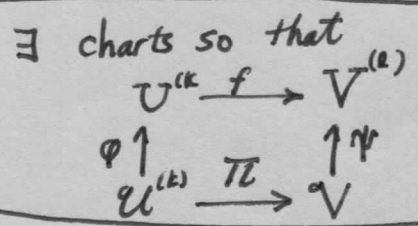 ∃ charts so that
U^(k f V^(l)
φ ψ
𝒰^(k) π 𝒱